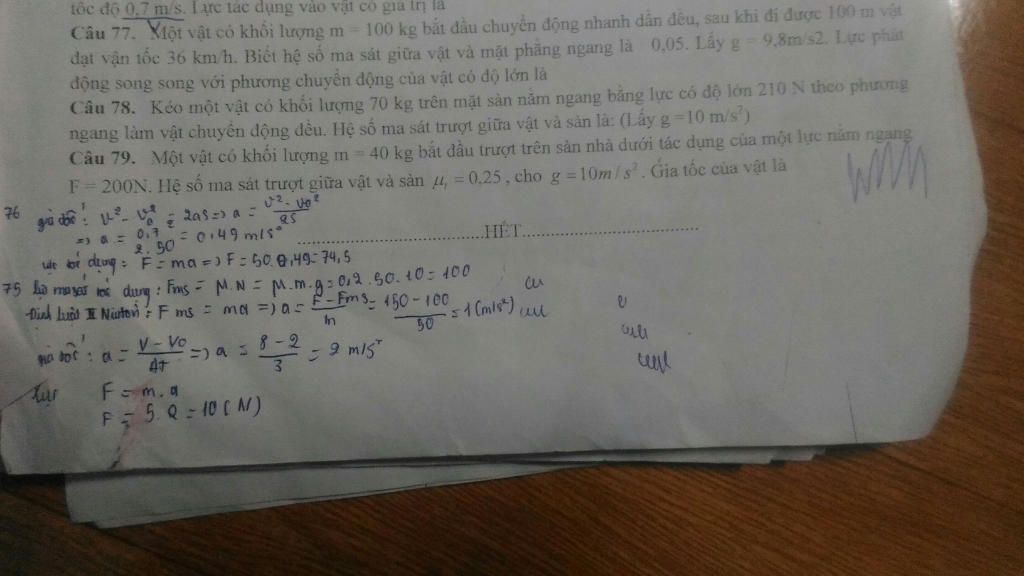 tốc độ 0,7 m/s. Lực tác dụng vào vật có giá trị là
Câu 77. Một vật có khối lượng m = 100 kg bắt đầu chuyển động nhanh dần đều, sau khi đi được 100 m vật
đạt vận tốc 36 km/h. Biết hệ số ma sát giữa vật và mặt phẳng ngang là 0,05. Lấy g = 9,8m/s2. Lực phát
động song song với phương chuyển động của vật có độ lớn là
Câu 78. Kéo một vật có khối lượng 70 kg trên mặt sàn nằm ngang bằng lực có độ lớn 210 N theo phương
ngang làm vật chuyển động đều. Hệ số ma sát trượt giữa vật và sàn là: (Lấy g =10 m/s²)
Câu 79. Một vật có khối lượng m = 40 kg bắt đầu trượt trên sàn nhà dưới tác dụng của một lực nằm ngang
F = 200N. Hệ số ma sát trượt giữa vật và sàn μt = 0,25, cho g = 10m/s². Gia tốc của vật là
76 gia tốc: v² - v₀² = 2as => a = (v² - v₀²)/2s
=> a = 0,7²/2.50 = 0,49 m/s²
HẾT
lực tác dụng: F = ma => F = 50.0,49 = 74,5
75 lực ma sát tác dụng: Fms = μ.N = μ.m.g = 0,2.50.10 = 100
Định luật II Niuton: F ms = ma => a = (F - Fms)/m = (150 - 100)/50 = 1 (m/s²)
gia tốc: a = (V - Vo)/Δt => a = (8 - 2)/3 = 2 m/s²
Lực F = m.a
F = 5.2 = 10 (N)